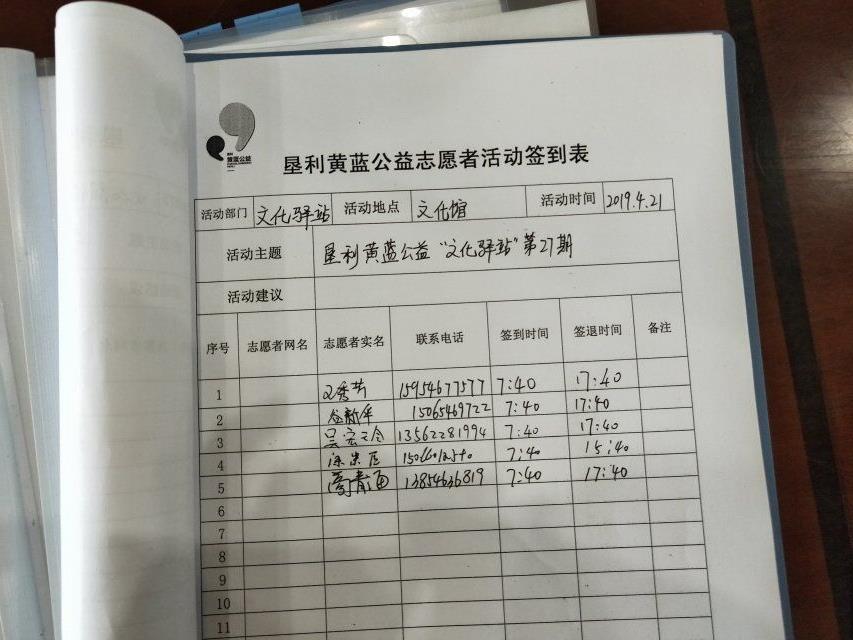 黄蓝公益
垦利黄蓝公益志愿者活动签到表
活动部门 文化驿站 活动地点 文化馆 活动时间 2019.4.21
活动主题 垦利黄蓝公益“文化驿站”第27期
活动建议
序号 志愿者网名 志愿者实名 联系电话 签到时间 签退时间 备注
1 15954677577 7:40 17:40
2 15065469722 7:40 17:40
3 13562281994 7:40 17:40
4 7:40 15:40
5 13854636819 7:40 17:40
6
7
8
9
10
11